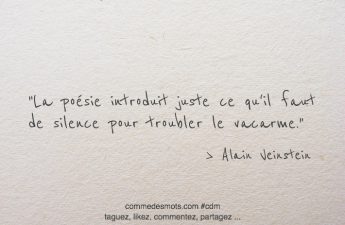 "La poésie introduit juste ce qu'il faut
de silence pour troubler le vacarme."
> Alain Veinstein
commedesmots.com #cdm
taguez, likez, commentez, partagez ...